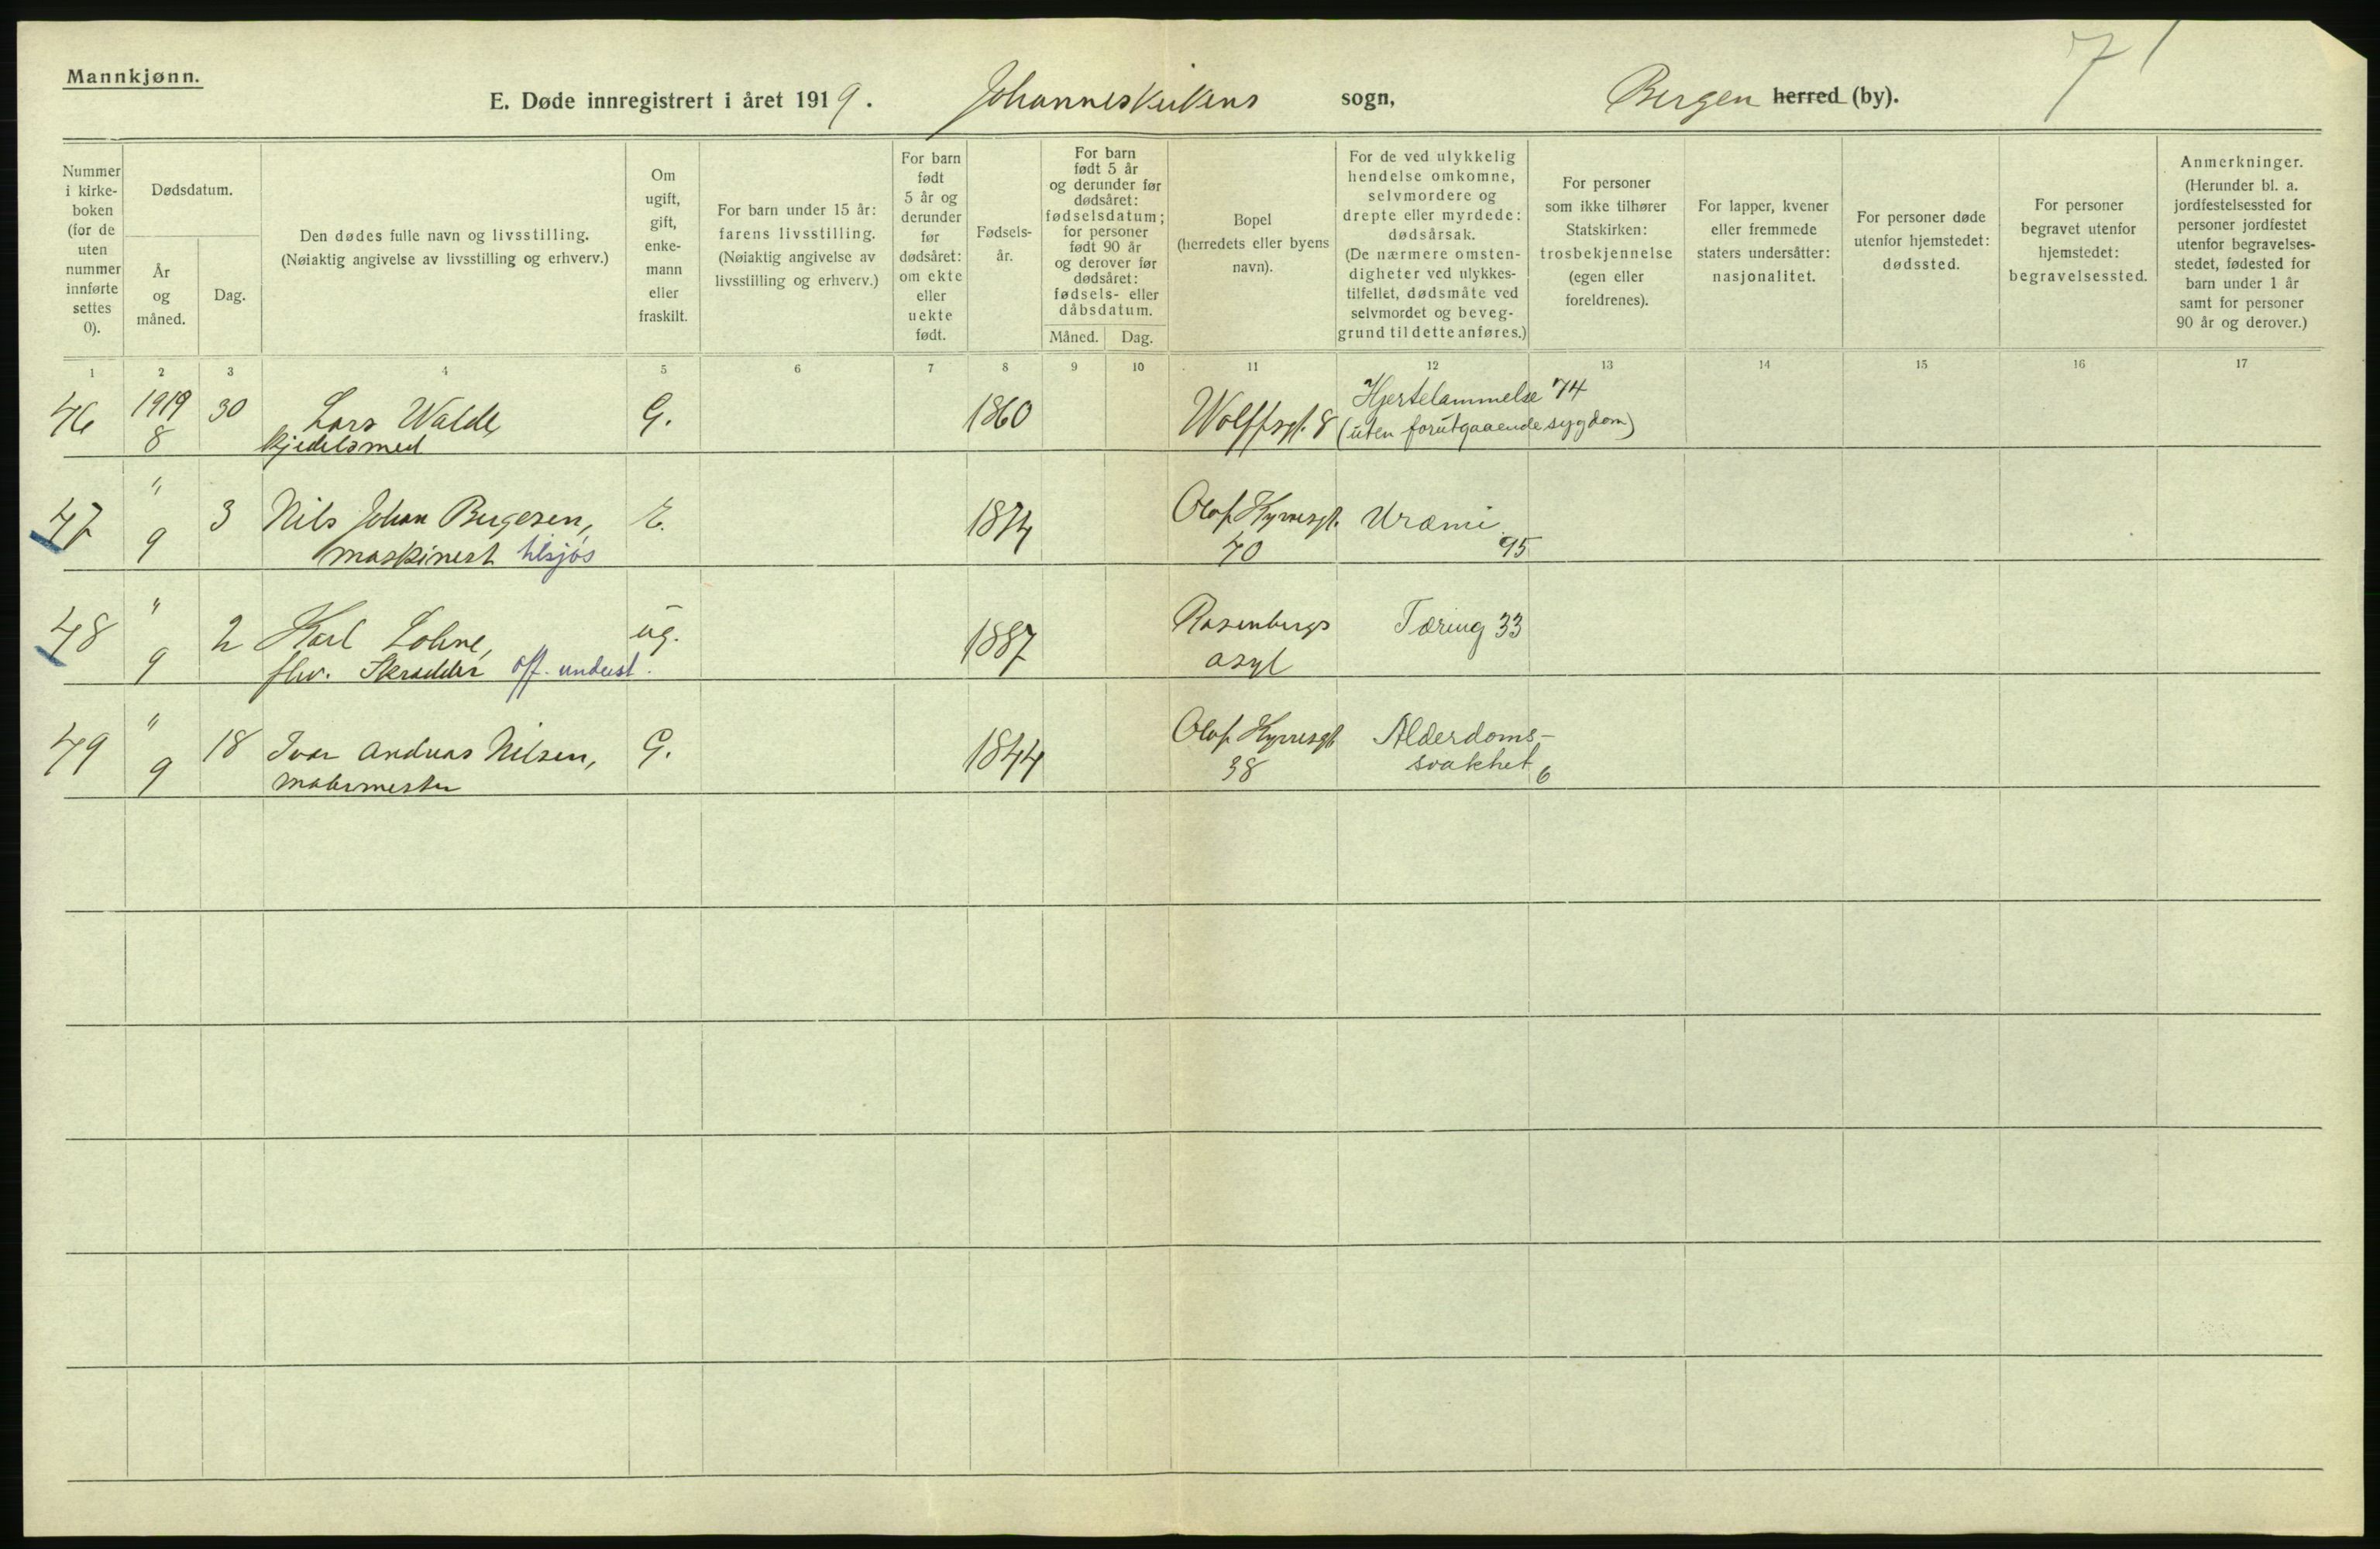 Mannkjønn.
E. Døde innregistrert i året 1919. Johanneskirkens sogn, Bergen herred (by).
71
Nummer i kirke-boken (for de uten nummer innførte settes 0).
Dødsdatum.
År og måned.
Dag.
Den dødes fulle navn og livsstilling.
(Nøiaktig angivelse av livsstilling og erhverv.)
Om ugift, gift, enke-mann eller fraskilt.
For barn under 15 år: farens livsstilling.
(Nøiaktig angivelse av livsstilling og erhverv.)
For barn født 5 år og derunder før dødsåret: om ekte eller uekte født.
Fødsels-år.
For barn født 5 år og derunder før dødsåret: fødselsdatum; for personer født 90 år og derover før dødsåret: fødsels- eller dåbsdatum.
Måned.
Dag.
Bopel (herredets eller byens navn).
For de ved ulykkelig hendelse omkomne, selvmordere og drepte eller myrdede: dødsårsak.
(De nærmere omsten-digheter ved ulykkes-tilfellet, dødsmåte ved selvmordet og beveg-grund til dette anføres.)
For personer som ikke tilhører Statskirken: trosbekjennelse (egen eller foreldrenes).
For lapper, kvener eller fremmede staters undersåtter: nasjonalitet.
For personer døde utenfor hjemstedet: dødssted.
For personer begravet utenfor hjemstedet: begravelsessted.
Anmerkninger.
(Herunder bl. a. jordfestelsessted for personer jordfestet utenfor begravelses-stedet, fødested for barn under 1 år samt for personer 90 år og derover.)
1 2 3 4 5 6 7 8 9 10 11 12 13 14 15 16 17
46 1919 30 Lars Walde, G. 1860 Wolffsgt. 8 Hjertelammelse 74
8 kjedelsmed (uten forutgaaende sygdom)
47 " 3 Nils Johan Birgesen, E. 1874 Olaf Kyrresgt. Uræmi
9 maskinist tilsjøs 40 95
48 " 2 Karl Lohne, ug. 1887 Rosenbergs Tæring 33
9 fhv. Skrædder off. underst. asyl
49 " 18 Ivar Andreas Nilsen, G. 1844 Olaf Kyrresgt. Alderdoms-
9 malermester 38 svakhet 6